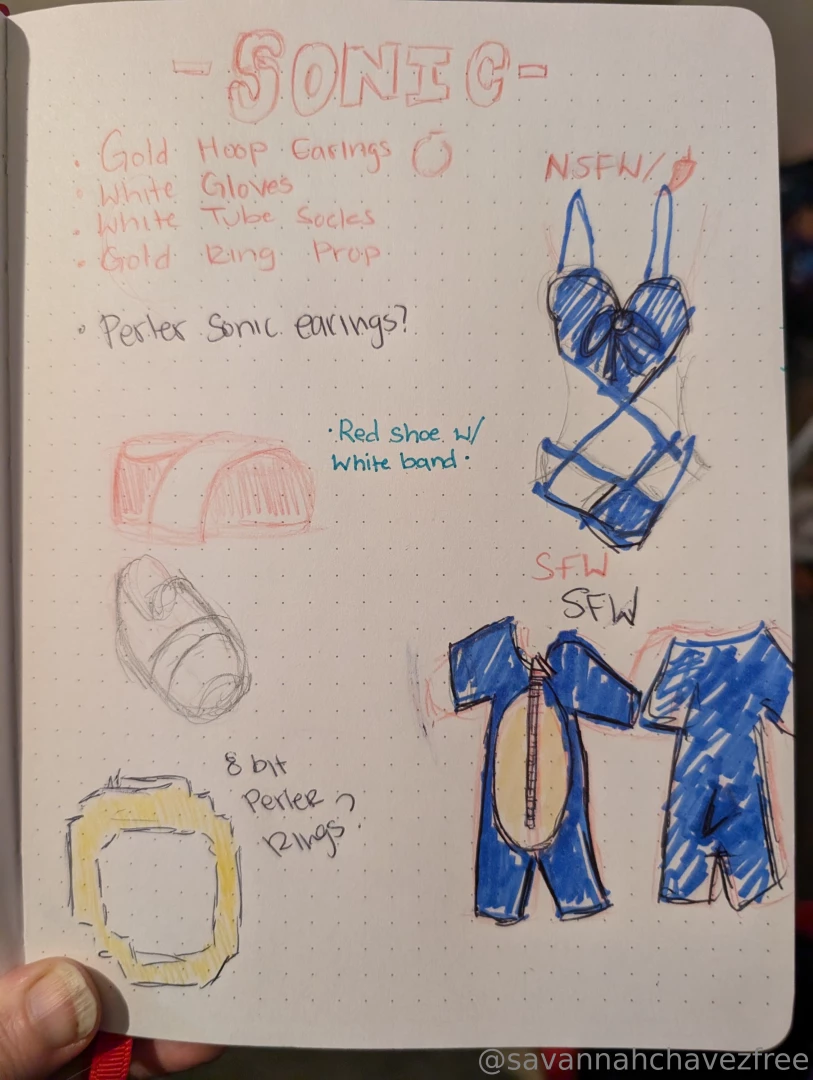 - SONIC -
• Gold Hoop Earings
• White Gloves
• White Tube Socks
• Gold Ring Prop
• Perler Sonic earings?
NSFW/
• Red shoe w/
white band •
SFW
SFW
8 bit
Perler
Rings?
@savannahchavezfree